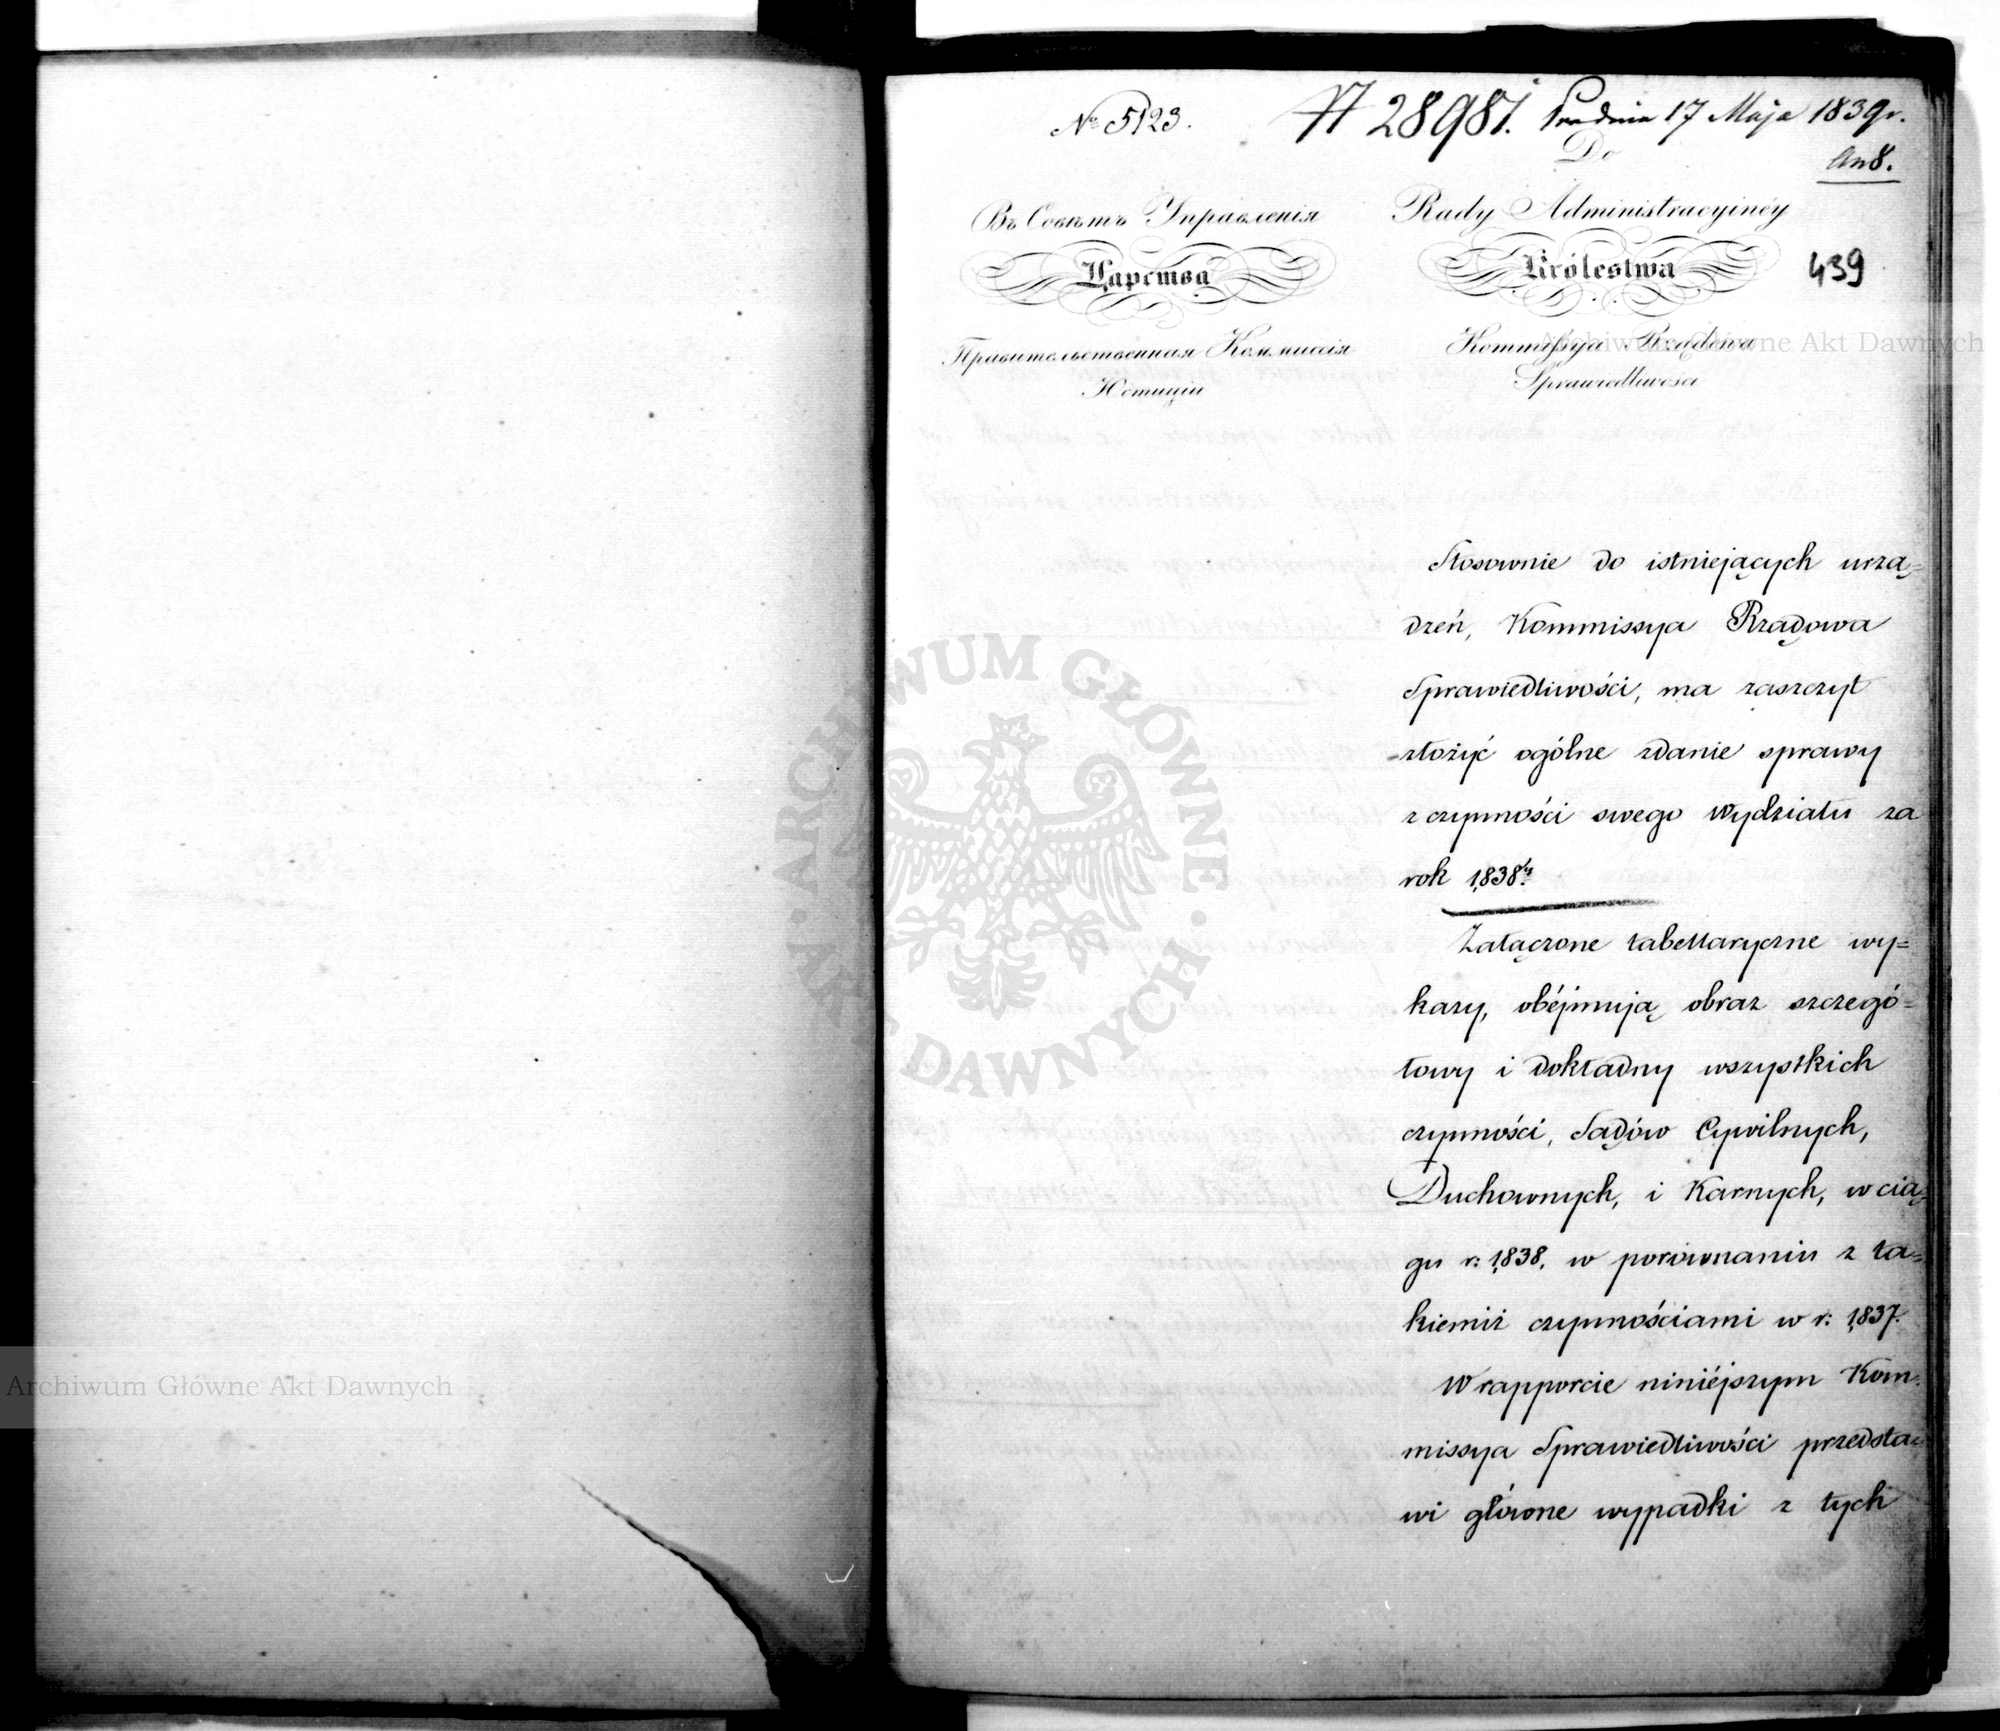 № 5123.
28987. 17 Maja 1839 r.
Do
Въ Совѣтъ Управленія
Царства
Правительственная Коммиссія
Юстиціи
Rady Administracyinéy
Królestwa
439
Kommissya Rządowa
Sprawiedliwości
Stosownie do istniejących urzą=
dzeń, Kommissya Rządowa
Sprawiedliwości, ma zaszczyt
złożyć ogólne zdanie sprawy
z czynności swego Wydziału za
rok 1838.
Załączone tabellaryczne wy=
kazy, obéjmują obraz szczegó=
łowy i dokładny wszystkich
czynności, Sądów Cywilnych,
Duchownych, i Karnych, w cią=
gu r: 1838. w porównaniu z ta=
kiemiż czynnościami w r: 1837.
W rapporcie niniéjszym Kom=
missya Sprawiedliwości przedsta=
wi główne wypadki z tych
Archiwum Główne Akt Dawnych
ARCHIWUM GŁÓWNE
AKT DAWNYCH
Archiwum Główne Akt Dawnych